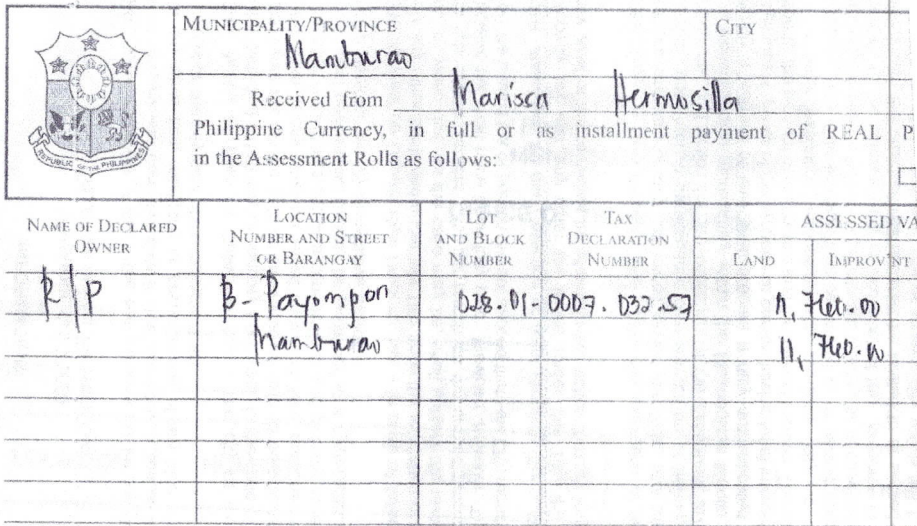 MUNICIPALITY/PROVINCE
Mamburao
CITY
Received from Marisca Hermosilla
Philippine Currency, in full or as installment payment of REAL P
in the Assessment Rolls as follows:
REPUBLIC OF THE PHILIPPINES
NAME OF DECLARED
OWNER
LOCATION
NUMBER AND STREET
OR BARANGAY
LOT
AND BLOCK
NUMBER
TAX
DECLARATION
NUMBER
ASSESSED VA
LAND
IMPROV'NT
R/P
B- Payompon
028.01-0007.032.57
11,760.00
Mamburao
11,760.00